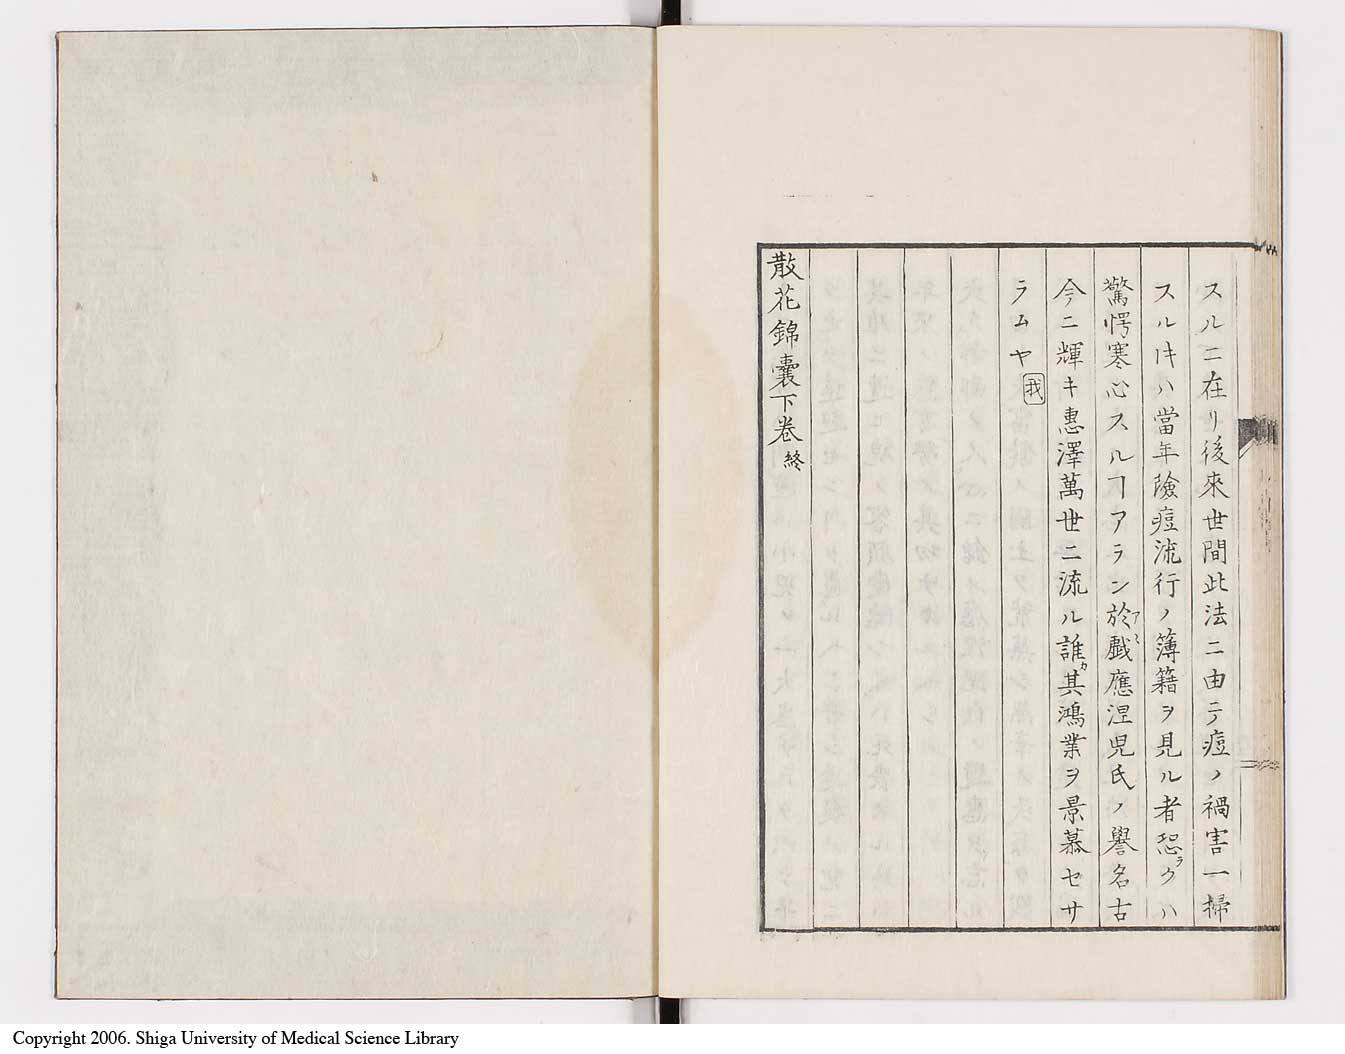 スルニ在リ後來世間此法ニ由テ痘ノ禍害一掃
スル𪜈ハ當年險痘流行ノ簿籍ヲ見ル者恐ラクハ
驚愕寒心スルヿアラン於戲アヽ應涅児氏ノ譽名古
今ニ輝キ惠澤萬世ニ流ル誰カ其鴻業ヲ景慕セサ
ラムヤ 我
散花錦囊下卷終
Copyright 2006. Shiga University of Medical Science Library